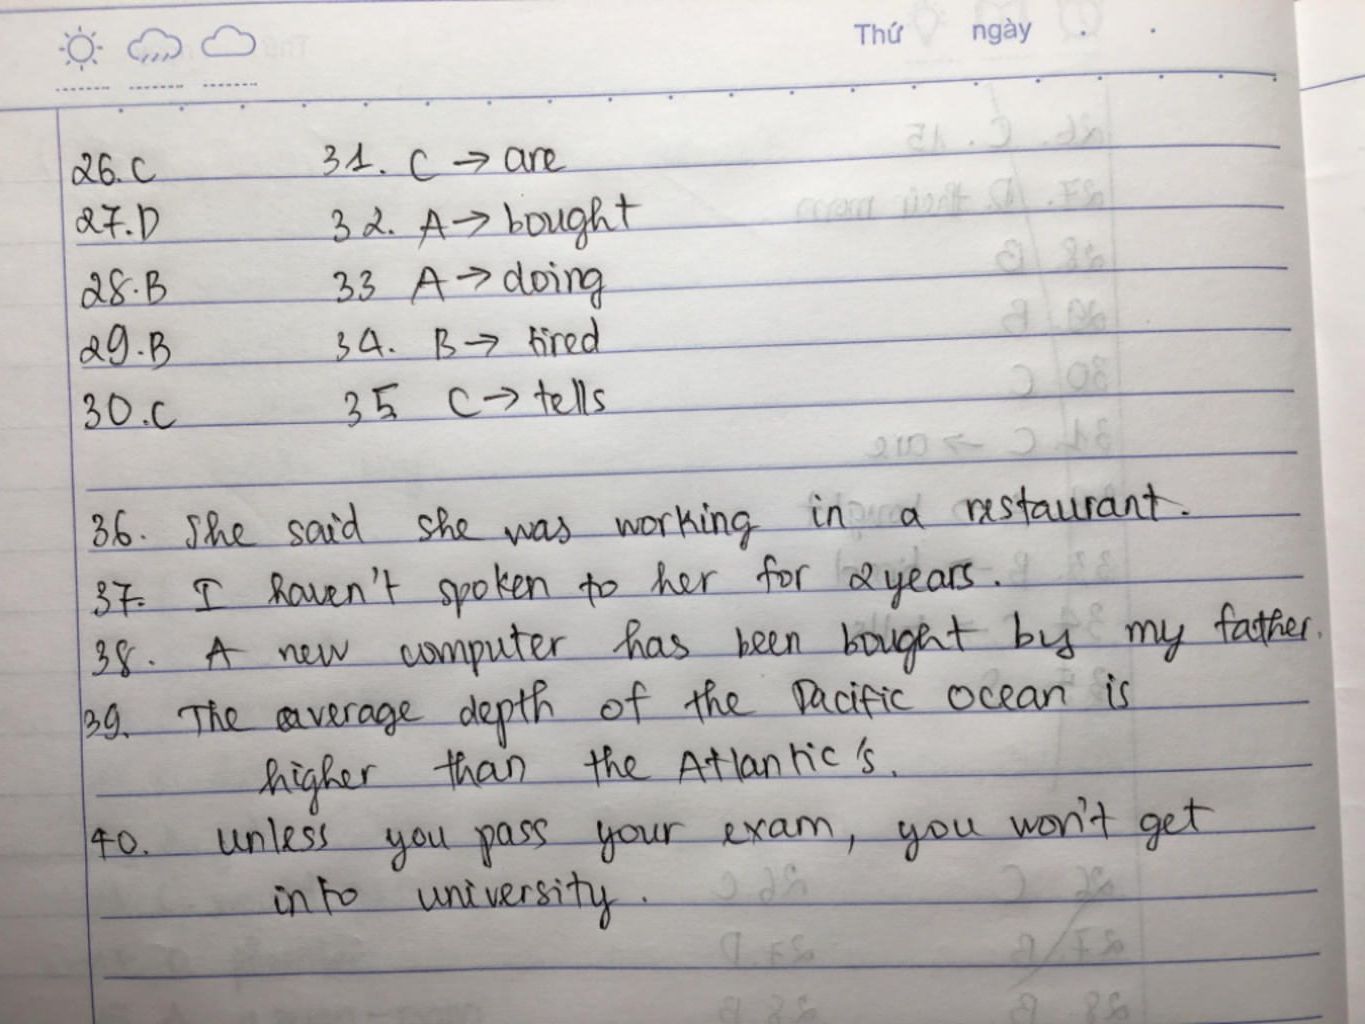 Thứ ngày . .
26. C 31. C → are
27. D 32. A → bought
28. B 33 A → doing
29. B 34. B → tired
30. C 35 C → tells
36. She said she was working in a restaurant.
37. I haven't spoken to her for 2 years.
38. A new computer has been bought by my father.
39. The average depth of the Pacific ocean is
higher than the Atlantic's.
40. unless you pass your exam, you won't get
into university.